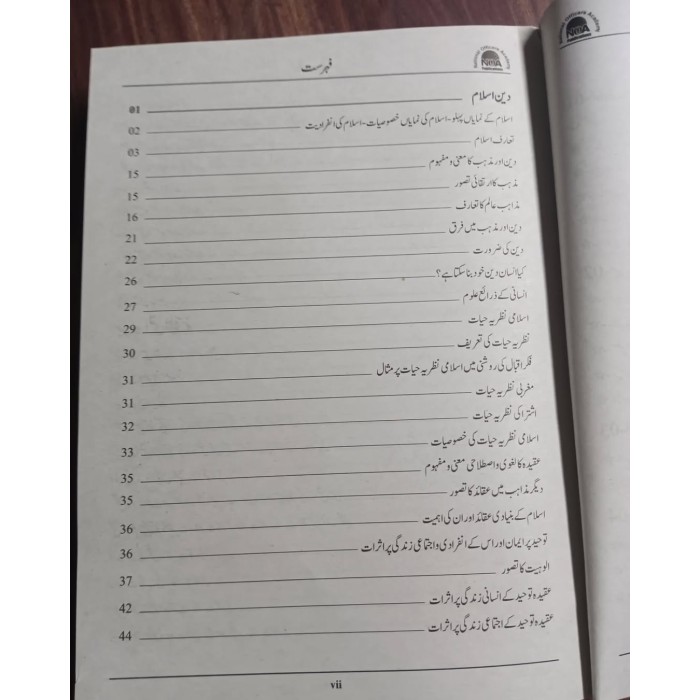 National Officers Academy
NOA
Publications
فہرست
دین اسلام 01
اسلام کے نمایاں پہلو-اسلام کی نمایاں خصوصیات-اسلام کی انفرادیت 02
تعارف اسلام 03
دین اور مذہب کا معنی و مفہوم 15
مذہب کا ارتقائی تصور 15
مذاہب عالم کا تعارف 16
دین اور مذہب میں فرق 21
دین کی ضرورت 22
کیا انسان دین خود بنا سکتا ہے؟ 26
انسانی کے ذرائع علوم 27
اسلامی نظریہ حیات 29
نظریہ حیات کی تعریف 30
فکر اقبال کی روشنی میں اسلامی نظریہ حیات پر مثال 31
مغربی نظریہ حیات 31
اشتراکی نظریہ حیات 32
اسلامی نظریہ حیات کی خصوصیات 33
عقیدہ کا لغوی و اصطلاحی معنی و مفہوم 35
دیگر مذاہب میں عقائد کا تصور 35
اسلام کے بنیادی عقائد اور ان کی اہمیت 36
توحید پر ایمان اور اس کے انفرادی و اجتماعی زندگی پر اثرات 36
الوہیت کا تصور 37
عقیدہ توحید کے انسانی زندگی پر اثرات 42
عقیدہ توحید کے اجتماعی زندگی پر اثرات 44
vii